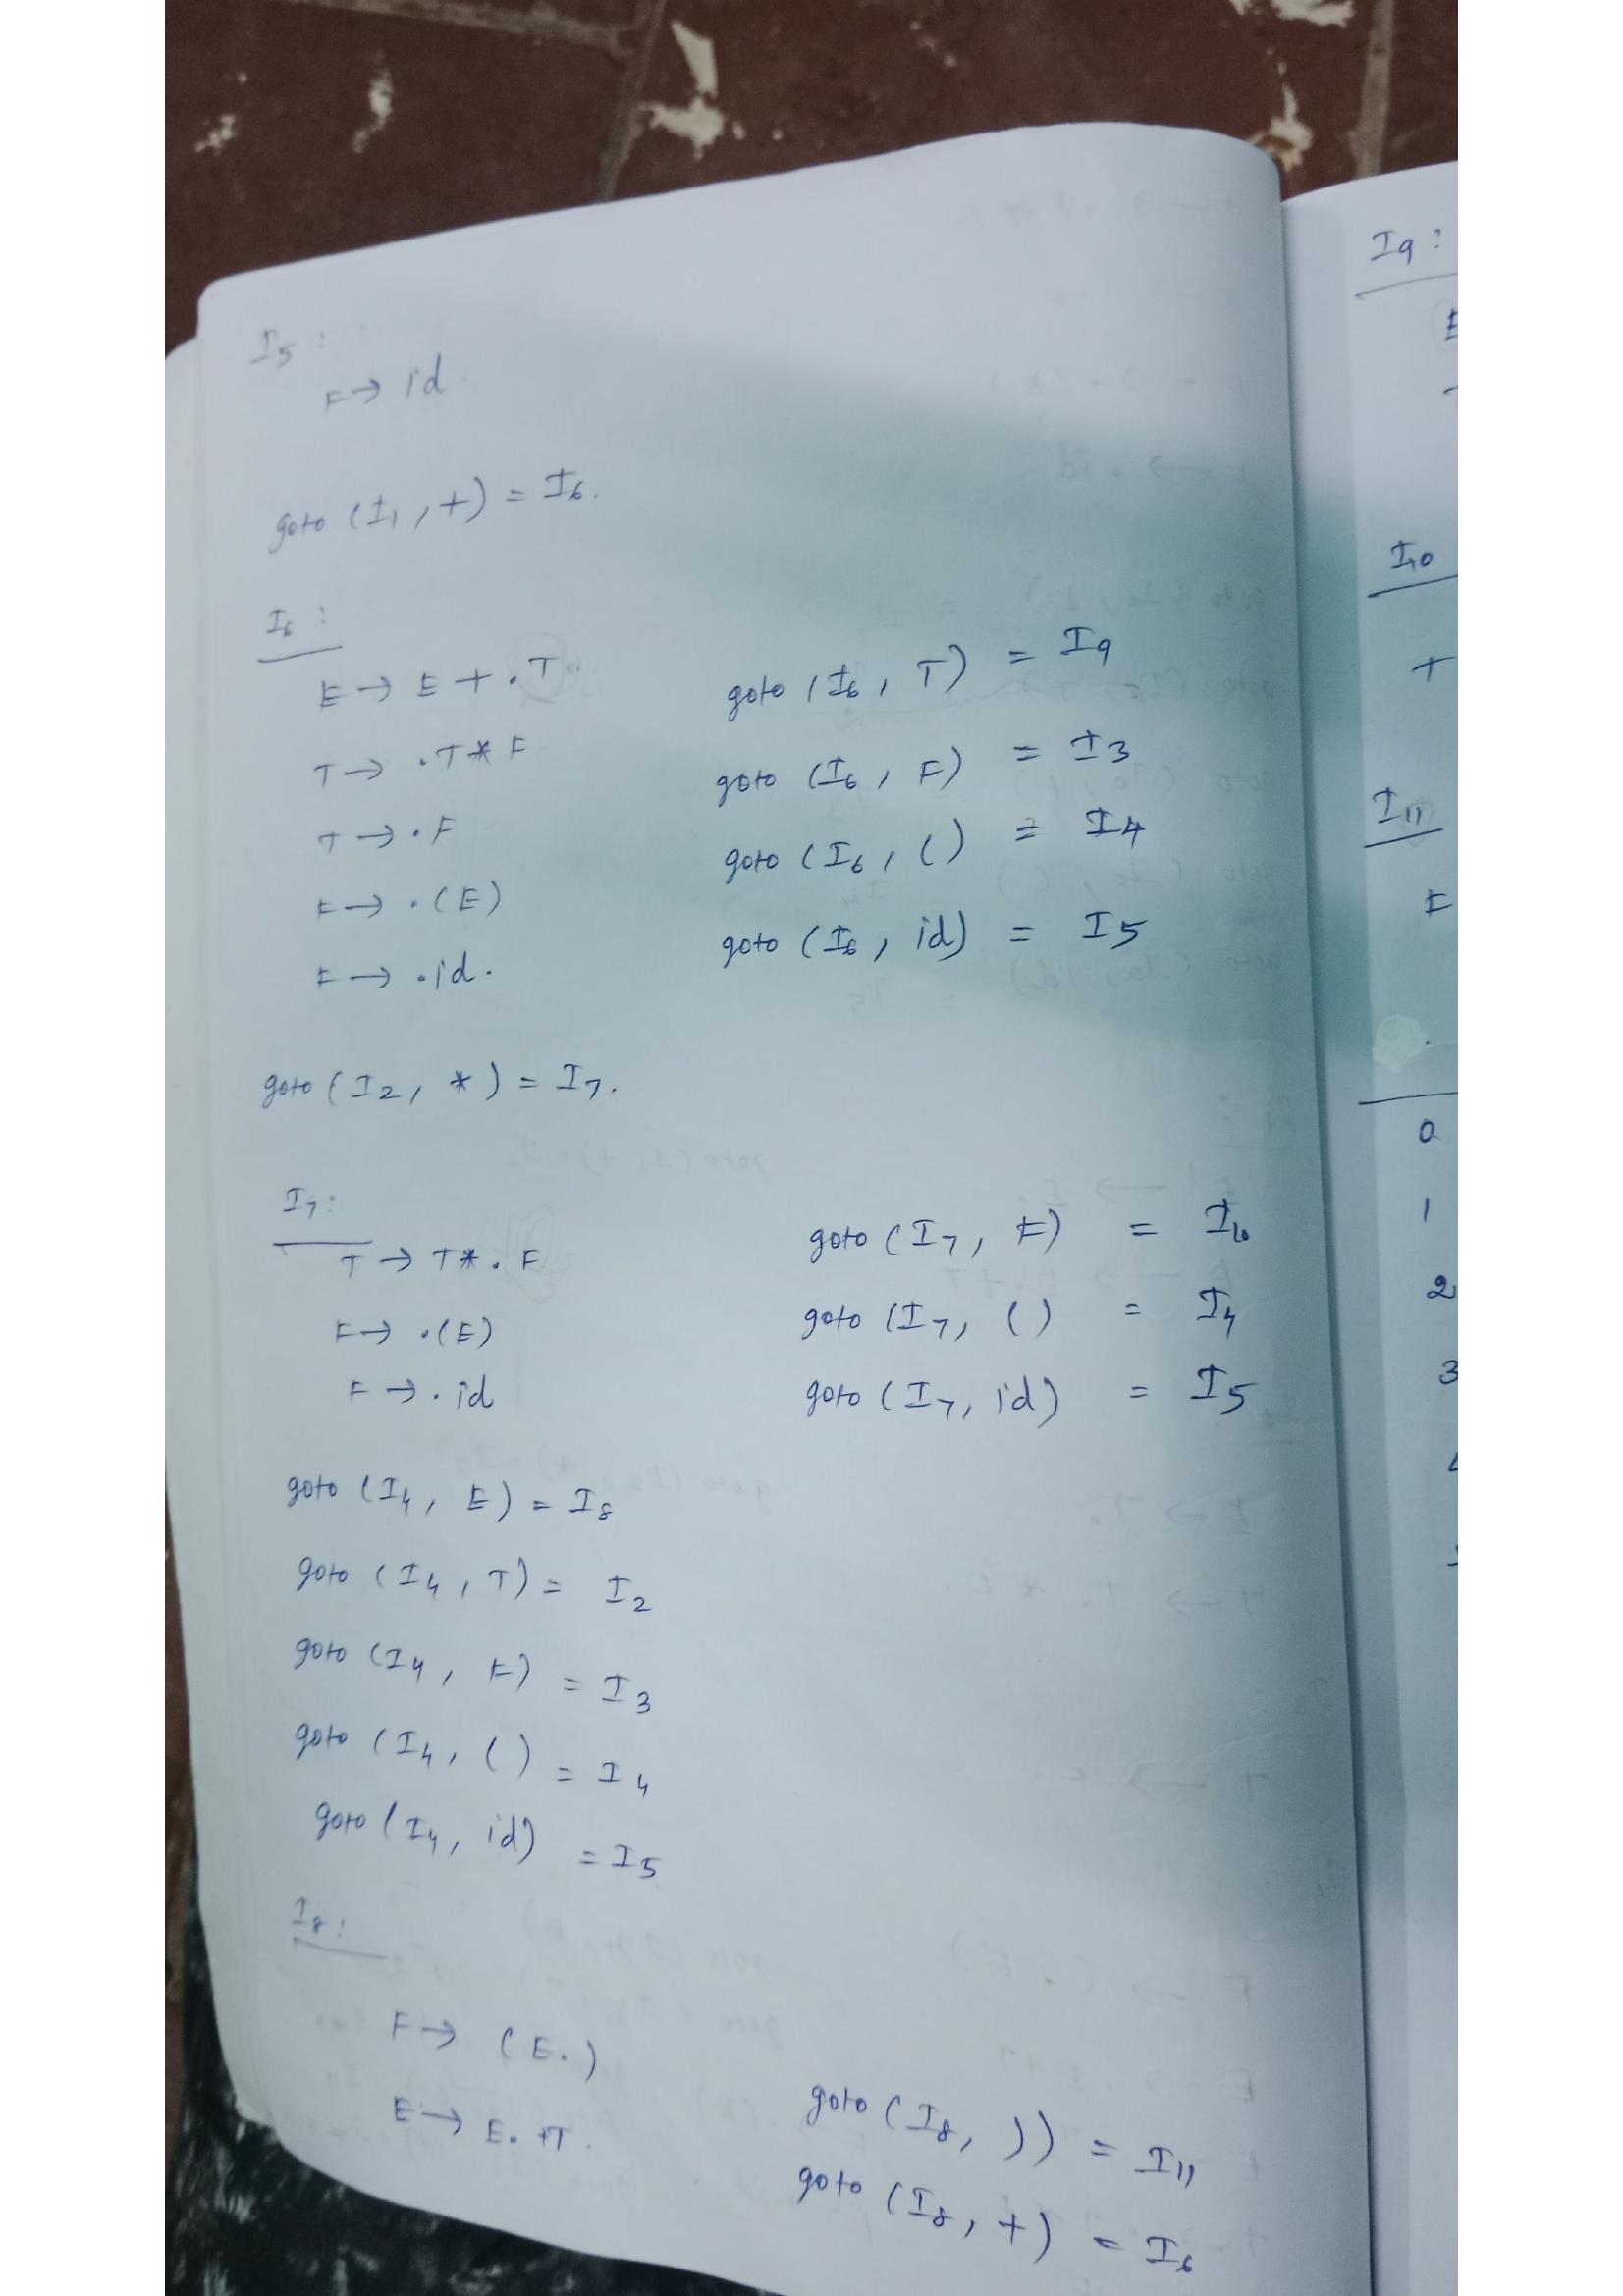 I5 :
F → id .
goto (I1 , +) = I6 .
I6 :
E → E + . T
T → . T * F
T → . F
F → . (E)
F → . id .
goto (I6 , T) = I9
goto (I6 , F) = I3
goto (I6 , () = I4
goto (I6 , id) = I5
goto (I2 , *) = I7 .
I7 :
T → T * . F
F → . (E)
F → . id
goto (I7 , F) = I10
goto (I7 , () = I4
goto (I7 , id) = I5
goto (I4 , E) = I8
goto (I4 , T) = I2
goto (I4 , F) = I3
goto (I4 , () = I4
goto (I4 , id) = I5
I8 :
F → (E . )
E → E . +T .
goto (I8 , )) = I11
goto (I8 , +) = I6
I9 :
E
I10
T
I11
F
0
1
2
3